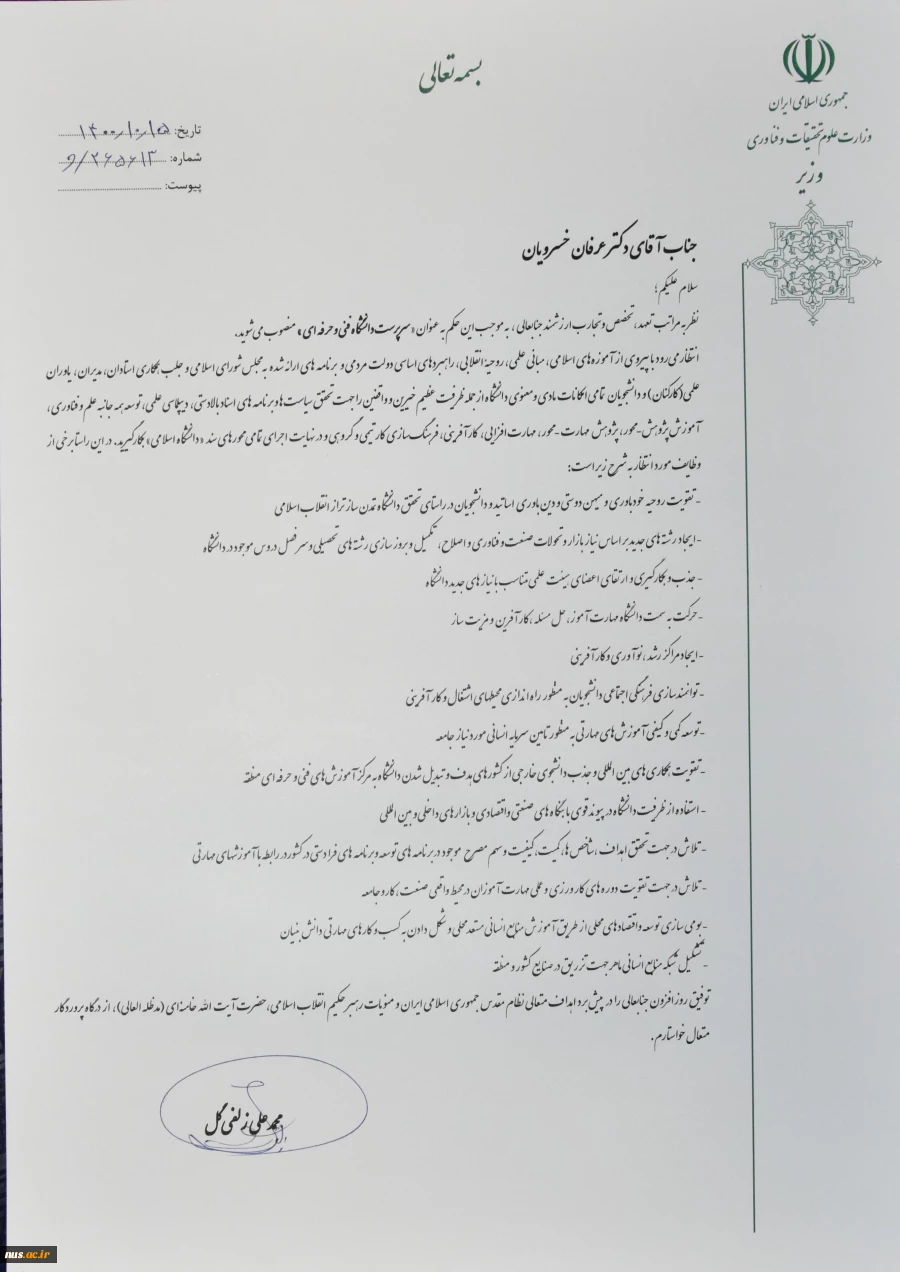 بسمه تعالی
جمهوری اسلامی ایران
وزارت علوم تحقیقات و فناوری
وزیر
تاریخ: ۱۴۰۰/۱۰/۱۵
شماره: ۲۶۵۶۱۳/و
پیوست:
جناب آقای دکتر عرفان خسرویان
سلام علیکم؛
نظر به مراتب تعهد، تخصص و تجارب ارزشمند جنابعالی، به موجب این حکم به عنوان «سرپرست دانشگاه فنی و حرفه ای» منصوب می شوید.
انتظار می رود با پیروی از آموزه های اسلامی، مبانی علمی، روحیه انقلابی، راهبردهای اساسی دولت مردمی و برنامه های ارائه شده به مجلس شورای اسلامی و جلب همکاری استادان، مدیران، یاوران
علمی (کارکنان) و دانشجویان تمامی امکانات مادی و معنوی دانشگاه از جمله ظرفیت عظیم خیرین و واقفین را جهت تحقق سیاست ها و برنامه های اسناد بالادستی، دیپلماسی علمی، توسعه همه جانبه علم و فناوری،
آموزش پژوهش-محور، پژوهش مهارت-محور، مهارت افزایی، کارآفرینی، فرهنگ سازی کار تیمی و گروهی و در نهایت اجرای تمامی محورهای سند «دانشگاه اسلامی» بکار گیرید. در این راستا برخی از
وظایف مورد انتظار به شرح زیر است:
- تقویت روحیه خودباوری و میهن دوستی و دین باوری اساتید و دانشجویان در راستای تحقق دانشگاه تمدن ساز تراز انقلاب اسلامی
- ایجاد رشته های جدید بر اساس نیاز بازار و تحولات صنعت و فناوری و اصلاح، تکمیل و بروز سازی رشته های تحصیلی و سرفصل دروس موجود در دانشگاه
- جذب و بکارگیری و ارتقای اعضای هیئت علمی متناسب با نیازهای جدید دانشگاه
- حرکت به سمت دانشگاه مهارت آموز، حل مسئله، کارآفرین و مزیت ساز
- ایجاد مراکز رشد، نوآوری و کارآفرینی
- توانمندسازی فرهنگی اجتماعی دانشجویان به منظور راه اندازی محیطهای اشتغال و کارآفرینی
- توسعه کمی و کیفی آموزش های مهارتی به منظور تامین سرمایه انسانی مورد نیاز جامعه
- تقویت همکاری های بین المللی و جذب دانشجوی خارجی از کشورهای هدف و تبدیل شدن دانشگاه به مرکز آموزش های فنی و حرفه ای منطقه
- استفاده از ظرفیت دانشگاه در پیوند قوی با بنگاه های صنعتی و اقتصادی و بازارهای داخلی و بین المللی
- تلاش در جهت تحقق اهداف، شاخص ها، کمیت، کیفیت و سهم مصرح موجود در برنامه های توسعه و برنامه های فرادستی در کشور در رابطه با آموزشهای مهارتی
- تلاش در جهت تقویت دوره های کارورزی و عملی مهارت آموزان در محیط واقعی صنعت، کار و جامعه
- بومی سازی توسعه و اقتصادهای محلی از طریق آموزش منابع انسانی مستعد محلی و شکل دادن به کسب و کارهای مهارتی دانش بنیان
- تشکیل شبکه منابع انسانی ماهر جهت تزریق در صنایع کشور و منطقه
توفیق روزافزون جنابعالی را در پیش برد اهداف متعالی نظام مقدس جمهوری اسلامی ایران و منویات رهبر حکیم انقلاب اسلامی، حضرت آیت الله خامنه‌ای (مدظله العالی)، از درگاه پروردگار
متعال خواستارم.
محمد علی زلفی گل
nus.ac.ir